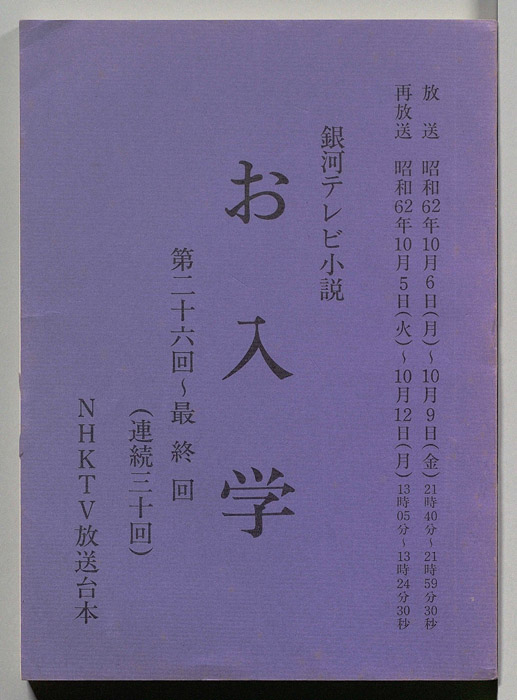 放　送　昭和62年10月6日(月)～10月9日(金)21時40分～21時59分30秒
再放送　昭和62年10月5日(火)～10月12日(月)13時05分～13時24分30秒
銀河テレビ小説
お入学
第二十六回～最終回
(連続三十回)
NHKTV放送台本